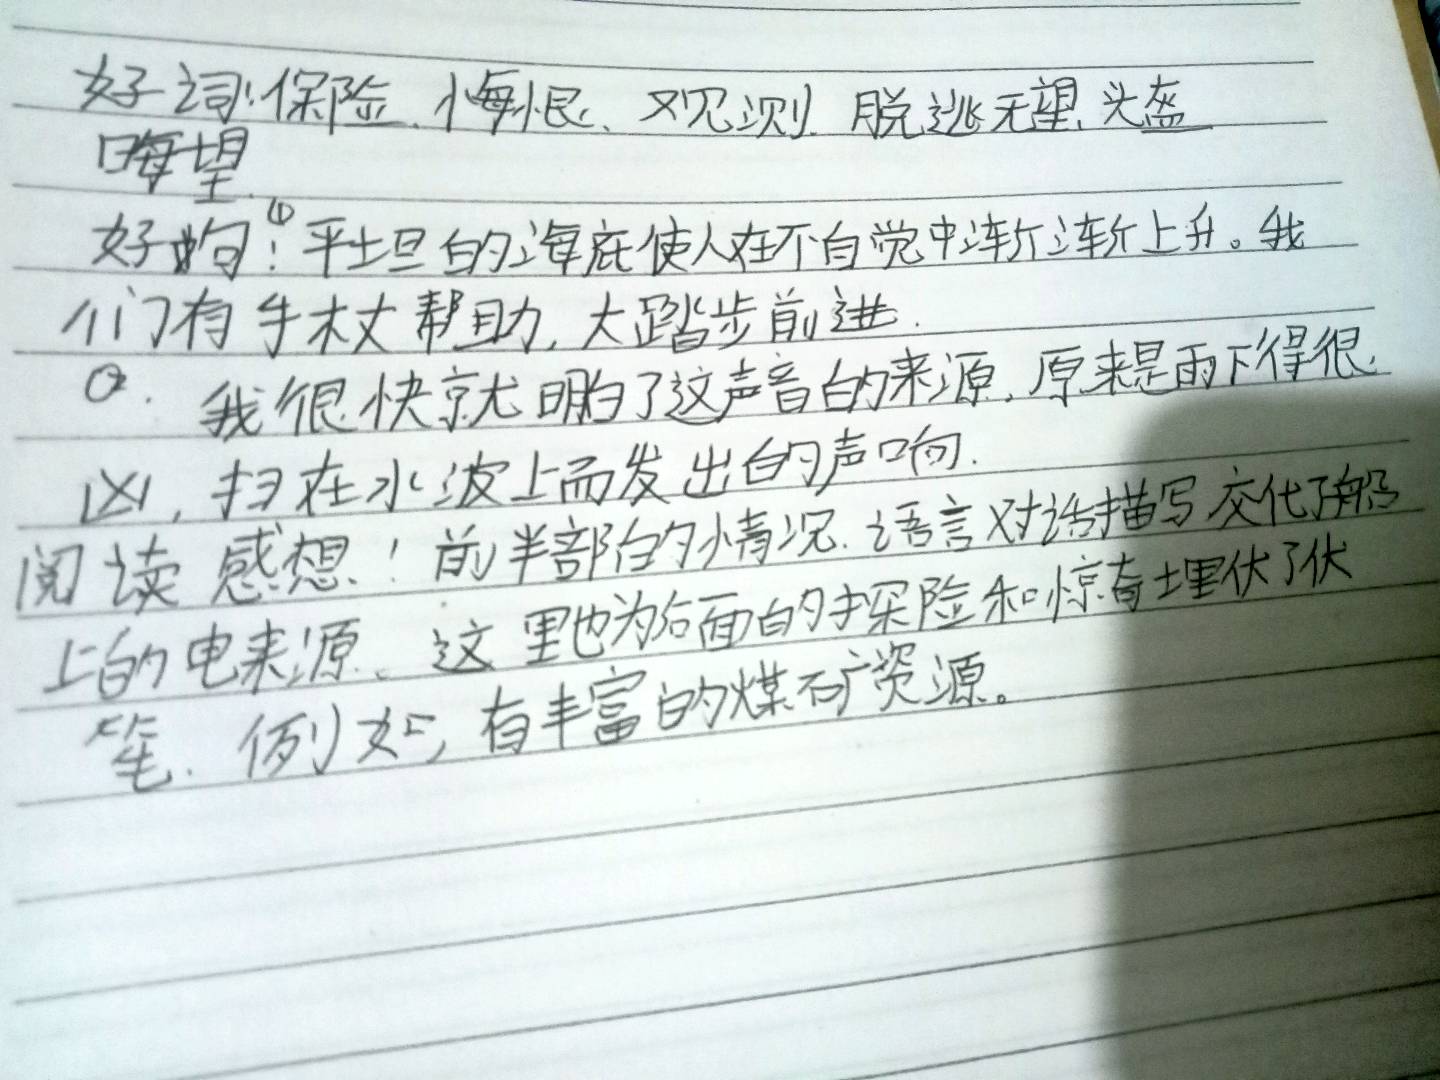 好词:保险、悔恨、观测、脱逃无望、头盔
晦望、
好句:①平坦的海底使人在不自觉中渐渐上升。我
们有手杖帮助,大踏步前进.
②. 我很快就明白了这声音的来源,原来是雨下得很
凶,扫在水波上而发出的声响.
阅读感想!前半部的情况.语言对话描写交化了船
上的电来源、这里也为后面的探险和惊奇埋伏了伏
笔.例如,有丰富的煤矿资源。